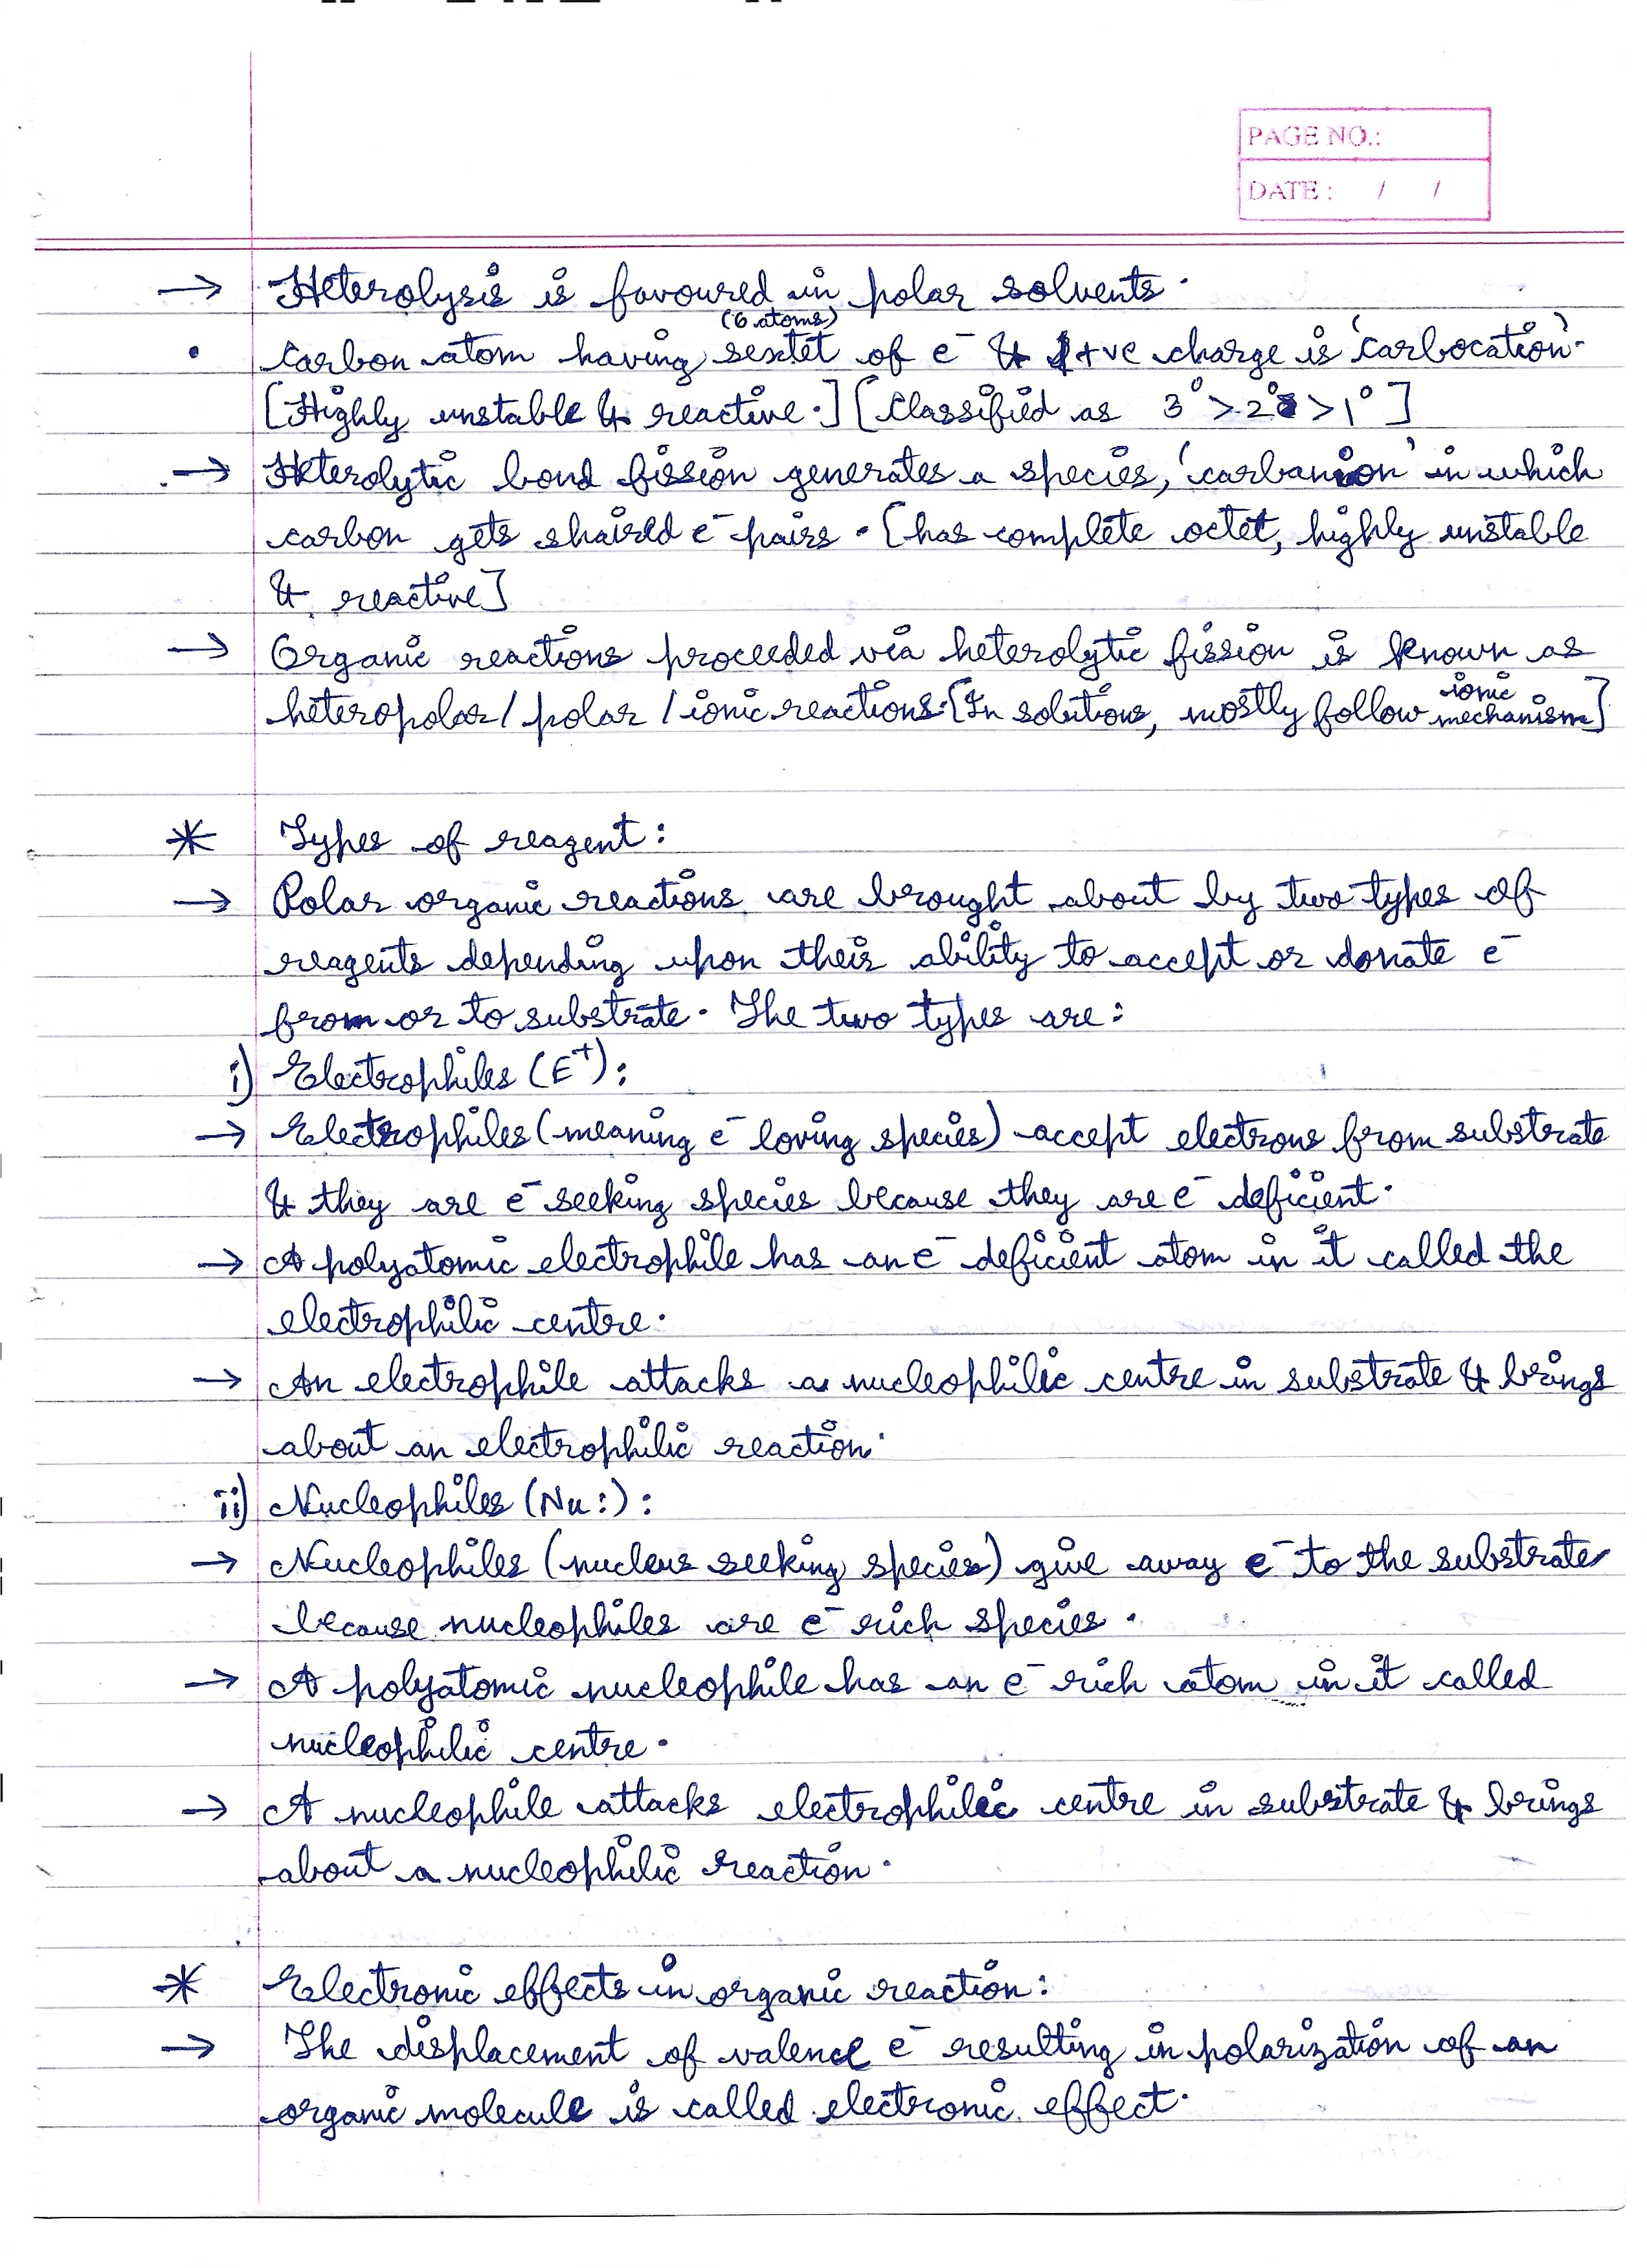 PAGE NO.:
DATE : / /
→ Heterolysis is favoured in polar solvents.
(6 atoms)
• Carbon atom having sextet of e⁻ & +ve charge is 'carbocation'.
[Highly unstable & reactive.] [Classified as 3° > 2° > 1°]
→ Heterolytic bond fission generates a species, 'carbanion' in which
carbon gets shaired e⁻ pairs. [has complete octet, highly unstable
& reactive]
→ Organic reactions proceeded via heterolytic fission is known as
heteropolar / polar / ionic reactions. [In solutions, mostly follow ionic mechanism]
* Types of reagent:
→ Polar organic reactions are brought about by two types of
reagents depending upon their ability to accept or donate e⁻
from or to substrate. The two types are:
i) Electrophiles (E⁺):
→ Electrophiles (meaning e⁻ loving species) accept electrons from substrate
& they are e⁻ seeking species because they are e⁻ deficient.
→ A polyatomic electrophile has an e⁻ deficient atom in it called the
electrophilic centre.
→ An electrophile attacks a nucleophilic centre in substrate & brings
about an electrophilic reaction.
ii) Nucleophiles (Nu:):
→ Nucleophiles (nucleus seeking species) give away e⁻ to the substrate
because nucleophiles are e⁻ rich species.
→ A polyatomic nucleophile has an e⁻ rich atom in it called
nucleophilic centre.
→ A nucleophile attacks electrophilic centre in substrate & brings
about a nucleophilic reaction.
* Electronic effects in organic reaction:
→ The displacement of valence e⁻ resulting in polarization of an
organic molecule is called electronic effect.